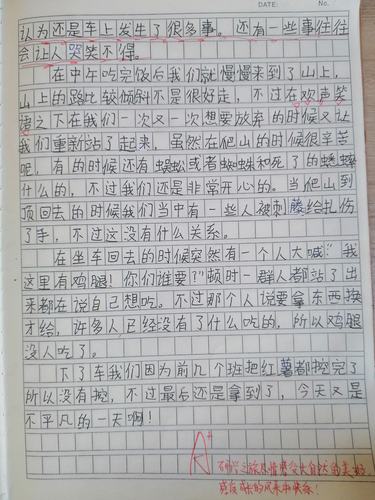 DATE: No.
认为还是车上发生了很多事。还有一些事往往
会让人哭笑不得。
在中午吃完饭后我们就慢慢来到了山上,
山上的路比较倾斜不是很好走,不过在欢声笑
语之下在我们一次又一次想要放弃的时候又让
我们重新站了起来,虽然在爬山的时候很辛苦
呢,有的时候还有蜈蚣或者蜘蛛和死了的蟋蟀
什么的,不过我们还是非常开心的。当爬山到
顶回去的时候我们当中有一些人被刺藤给扎伤
了手,不过这没有什么关系。
在坐车回去的时候突然有一个人大喊:“我
这里有鸡腿!你们谁要?”顿时一群人都站了出
来都在说自己想吃。不过那个人说要拿东西换
才给,许多人已经没有了什么吃的,所以鸡腿
没人吃了。
下了车我们因为前几个班把红薯都挖完了
所以没有挖,不过最后还是拿到了,今天又是
不平凡的一天啊!
A+
研学之旅尽情感受大自然的美好